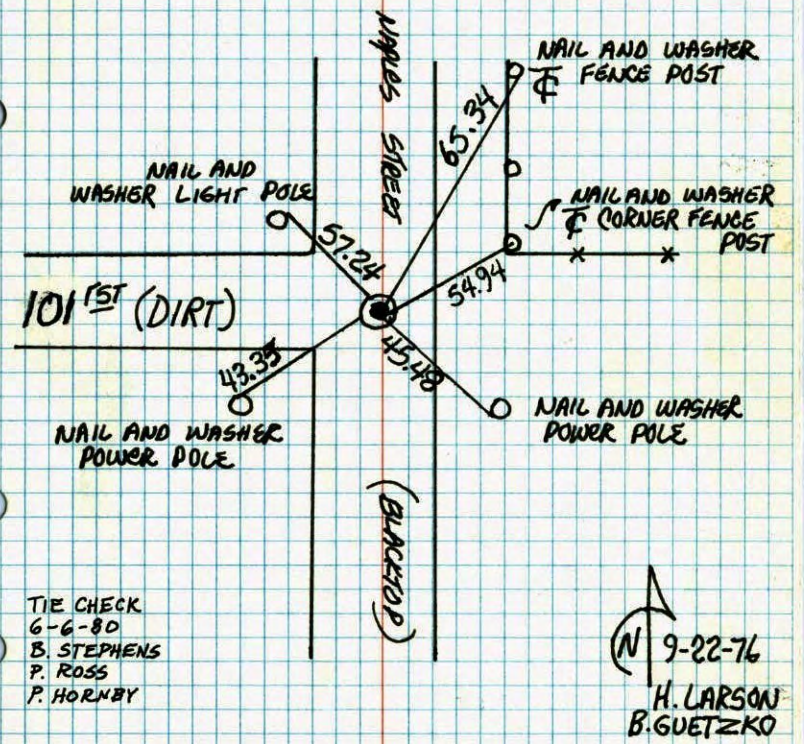 NAPLES STREET
NAIL AND WASHER
℄ FENCE POST
65.34
NAIL AND
WASHER LIGHT POLE
NAIL AND WASHER
℄ CORNER FENCE
POST
57.24
54.94
101 RST (DIRT)
43.35
45.48
NAIL AND WASHER
POWER POLE
NAIL AND WASHER
POWER POLE
(BLACKTOP)
TIE CHECK
6-6-80
B. STEPHENS
P. ROSS
P. HORNBY
N
9-22-76
H. LARSON
B. GUETZKO